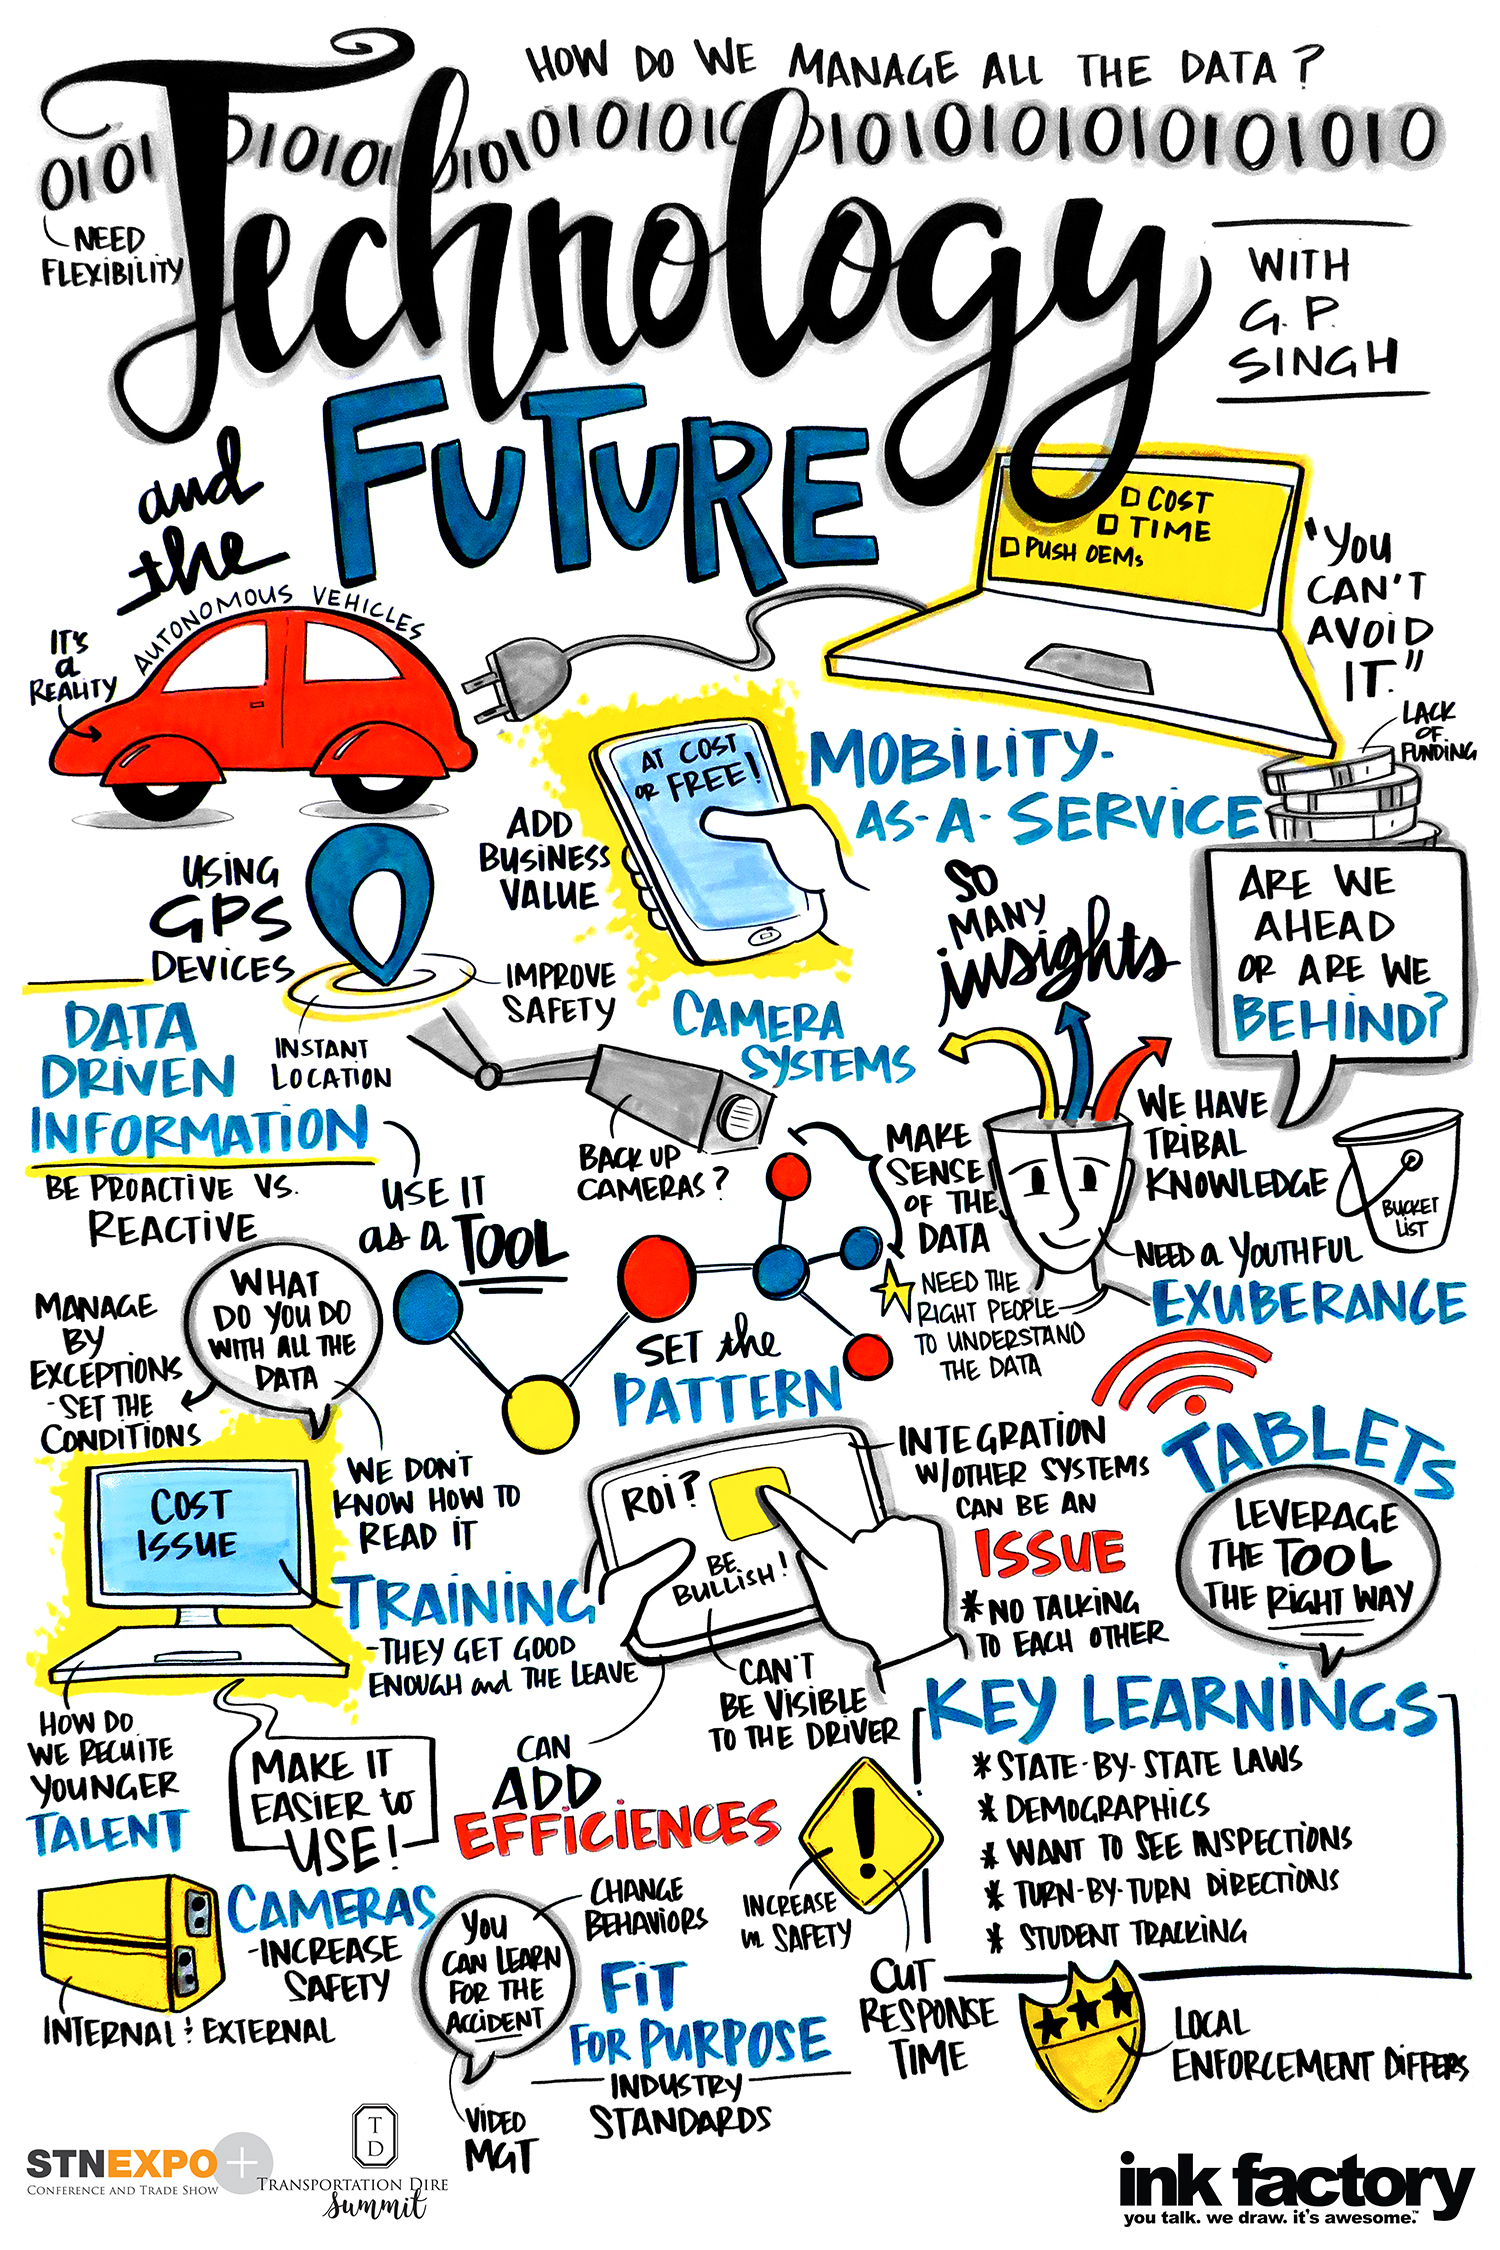 HOW DO WE MANAGE ALL THE DATA?
0101 0101010101010101010101010101010101010
NEED
FLEXIBILITY
Technology
and the
FUTURE
WITH
G. P.
SINGH
COST
TIME
PUSH OEMs
"YOU
CAN'T
AVOID
IT."
LACK
OF
FUNDING
AUTONOMOUS VEHICLES
IT'S
a
REALITY
AT COST
OR FREE!
ADD
BUSINESS
VALUE
MOBILITY-
AS-A-SERVICE
USING
GPS
DEVICES
IMPROVE
SAFETY
INSTANT
LOCATION
SO
MANY
insights
ARE WE
AHEAD
OR ARE WE
BEHIND?
DATA
DRIVEN
INFORMATION
BE PROACTIVE VS.
REACTIVE
USE IT
as a TOOL
CAMERA
SYSTEMS
BACK UP
CAMERAS?
MAKE
SENSE
OF THE
DATA
WE HAVE
TRIBAL
KNOWLEDGE
BUCKET
LIST
NEED a YOUTHFUL
EXUBERANCE
NEED THE
RIGHT PEOPLE
TO UNDERSTAND
THE DATA
MANAGE
BY
EXCEPTIONS
-SET THE
CONDITIONS
WHAT
DO YOU DO
WITH ALL THE
DATA
WE DON'T
KNOW HOW TO
READ IT
SET the
PATTERN
COST
ISSUE
TRAINING
-THEY GET GOOD
ENOUGH and THE LEAVE
ROI?
BE
BULLISH!
INTEGRATION
W/OTHER SYSTEMS
CAN BE AN
ISSUE
* NO TALKING
TO EACH OTHER
TABLETS
LEVERAGE
THE TOOL
THE RIGHT WAY
CAN'T
BE VISIBLE
TO THE DRIVER
HOW DO
WE RECUITE
YOUNGER
TALENT
MAKE IT
EASIER to
USE!
CAN
ADD
EFFICIENCES
KEY LEARNINGS
* STATE-BY-STATE LAWS
* DEMOGRAPHICS
* WANT TO SEE INSPECTIONS
* TURN-BY-TURN DIRECTIONS
* STUDENT TRACKING
!
INCREASE
in SAFETY
CUT
RESPONSE
TIME
CAMERAS
-INCREASE
SAFETY
INTERNAL & EXTERNAL
YOU
CAN LEARN
FOR THE
ACCIDENT
CHANGE
BEHAVIORS
VIDEO
MGT
FIT
FOR PURPOSE
INDUSTRY
STANDARDS
LOCAL
ENFORCEMENT DIFFERS
STNEXPO+
CONFERENCE AND TRADE SHOW
T
D
TRANSPORTATION DIRE
Summit
ink factory
you talk. we draw. it's awesome.™